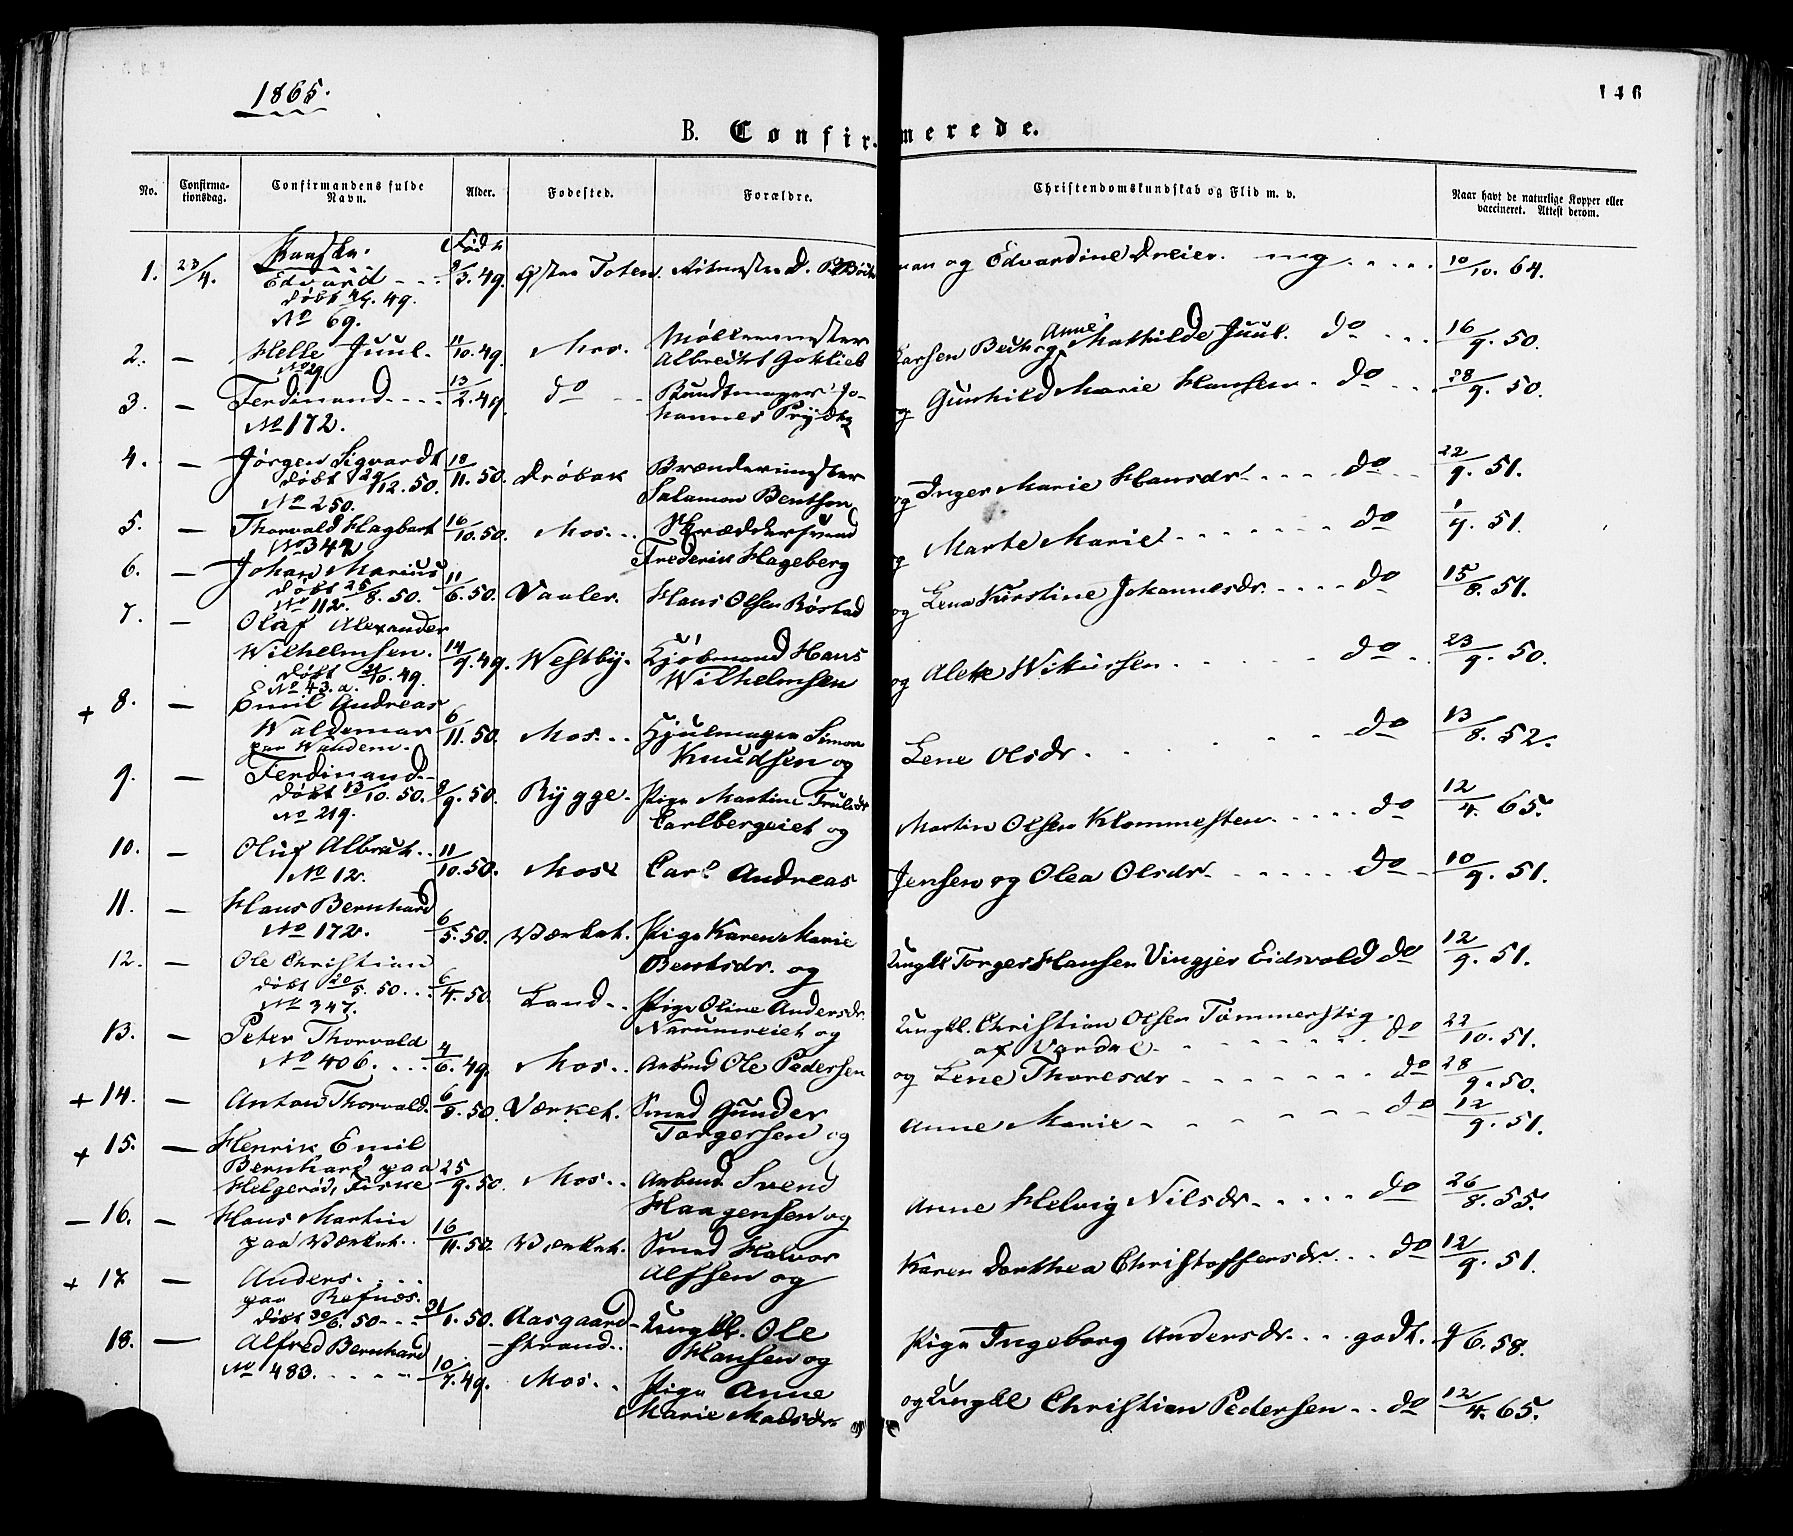 1865.
146
B. Confirmerede.
No. Confirmationsdag. Confirmandens fulde Navn. Alder. Fødested. Forældre. Christendomskundskab og Flid m. v. Naar havt de naturlige Kopper eller vaccineret. Attest derom.
1. 23/4. Edvard 3. 49. Østre Toten. og Edvardine Dreier. mg 10/10. 64.
døbt 49.
No 69.
2. — Helle Juul. 11/10. 49. Mos. Møllermester
Albrecht Gotlieb Larsen Beck og Anne Mathilde Juul. do 16/9. 50.
No 29
3. — Ferdinand 13/2. 49. do Bundtmager Jo-
hannes og Gunhild Marie Hansen. do 28/9. 50.
No 172.
4. — Jørgen Sigvardt 18/11. 50. Drøbak Brændermester
døbt 29/12. 50. Salamon Bentsen og Inger Marie Hansdr. do 22/9. 51.
No 250.
5. — Thorvald Hagbart 16/10. 50. Mos. Skræddersvend
No 342 Frederik Hageberg og Marte Marie do 1/9. 51.
6. — Johan Marius 11/6. 50. Vaaler. Hans Olsen Røstad og Lena Kirstine Johannesdr. do 15/8. 51.
døbt 25/8. 50.
No 112.
7. — Olaf Alexander
Wilhelmsen. 14/9. 49. Westby. Kjøbmand Hans
Wilhelmsen og Alette do 23/9. 50.
døbt 10. 49.
No 43. a.
+ 8. — Emil Andreas
Waldemar 6/11. 50. Mos. Hjulmager Simon
Knudsen og Lene Olsdr. do 13/8. 52.
paa Wandem.
9. — Ferdinand
døbt 13/10. 50. 9. 50. Rygge. Pige Martine Trulsdr
Carlbergeiet og Martin Olsen Klommesten do 12/4. 65.
No 219.
10. — Oluf Albret. 11/10. 50. Mos Carl Andreas Jensen og Olea Olsdr. do 10/9. 51.
No 12.
11. — Hans Bernhard
No 172. 6/5. 50. Værket. Pige Karen Marie
Bentsdr. og Ungkl Torger Hansen Vingjer Eidsvold do 12/9. 51.
12. — Ole Christian
døbt 20/5. 50. 6/4. 50 Land. Pige Oline Andersdr.
No 347. Narumseiet og Ungkl. Christian Olsen Tømmerstig
af Vardal do 22/10. 51.
13. — Peter Thorvald
No 406. 4/6. 49. Mos. Arbmd Ole Pedersen og Lene Thoresdr do 28/9. 50.
+ 14. — Anton Thorvald. 6/8. 50. Værket. Smed Gunder
Torgersen og Anne Marie do 12/9. 51.
+ 15. — Henrik Emil
Bernhard paa
Helgerød, Firke 25/9. 50. Mos. Arbmd. Svend
Haagensen og Anne Helvig Nilsdr. do 26/8. 55.
— 16. — Hans Martin
paa Værket. 16/11. 50. Værket. Smed Halvor
Alfsen og Karen Dorthea Christoffersdr. do 12/9. 51.
+ 17 — Anders.
paa Refnæs.
døbt 30/6. 50 31/1. 50. Aasgaard-
strand. Ungkl. Ole
Hansen og Pige Ingeborg Andersdr. godt. 9/6. 58.
18. — Alfred Bernhard
No 483. 10/7. 49. Mos. Pige Anne
Marie Madsdr og Ungkl Christian Pedersen do 12/4. 65.